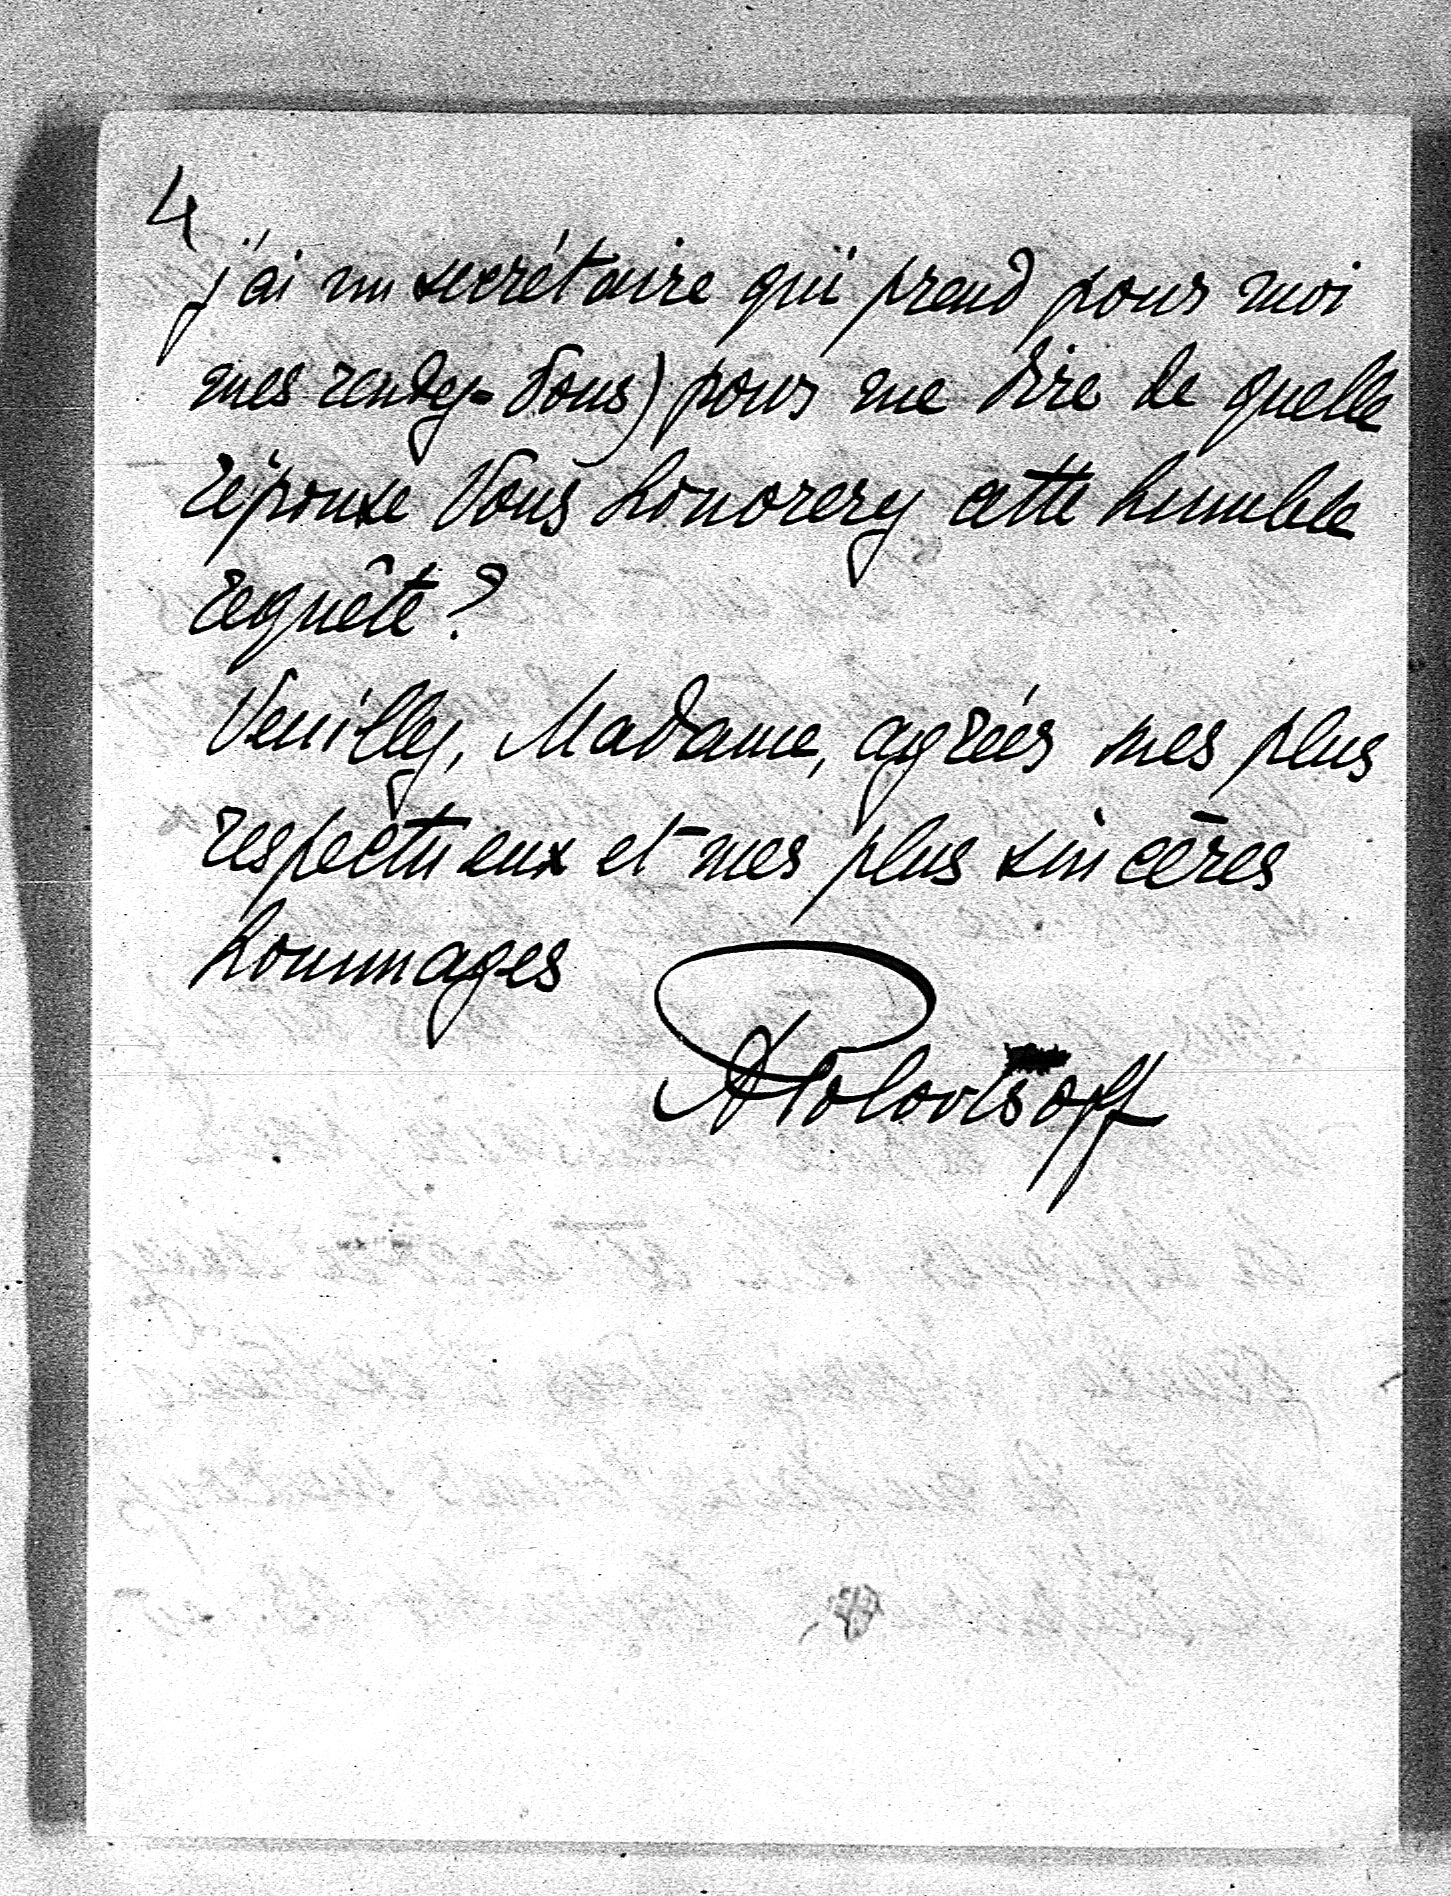 4
j'ai un secrétaire qui prend pour moi
mes rendez-Vous) pour me dire de quelle
réponse Vous honorerez cette humble
requête?
Veuillez, Madame, agréer mes plus
respectueux et mes plus sincères
hommages
APolovtsoff